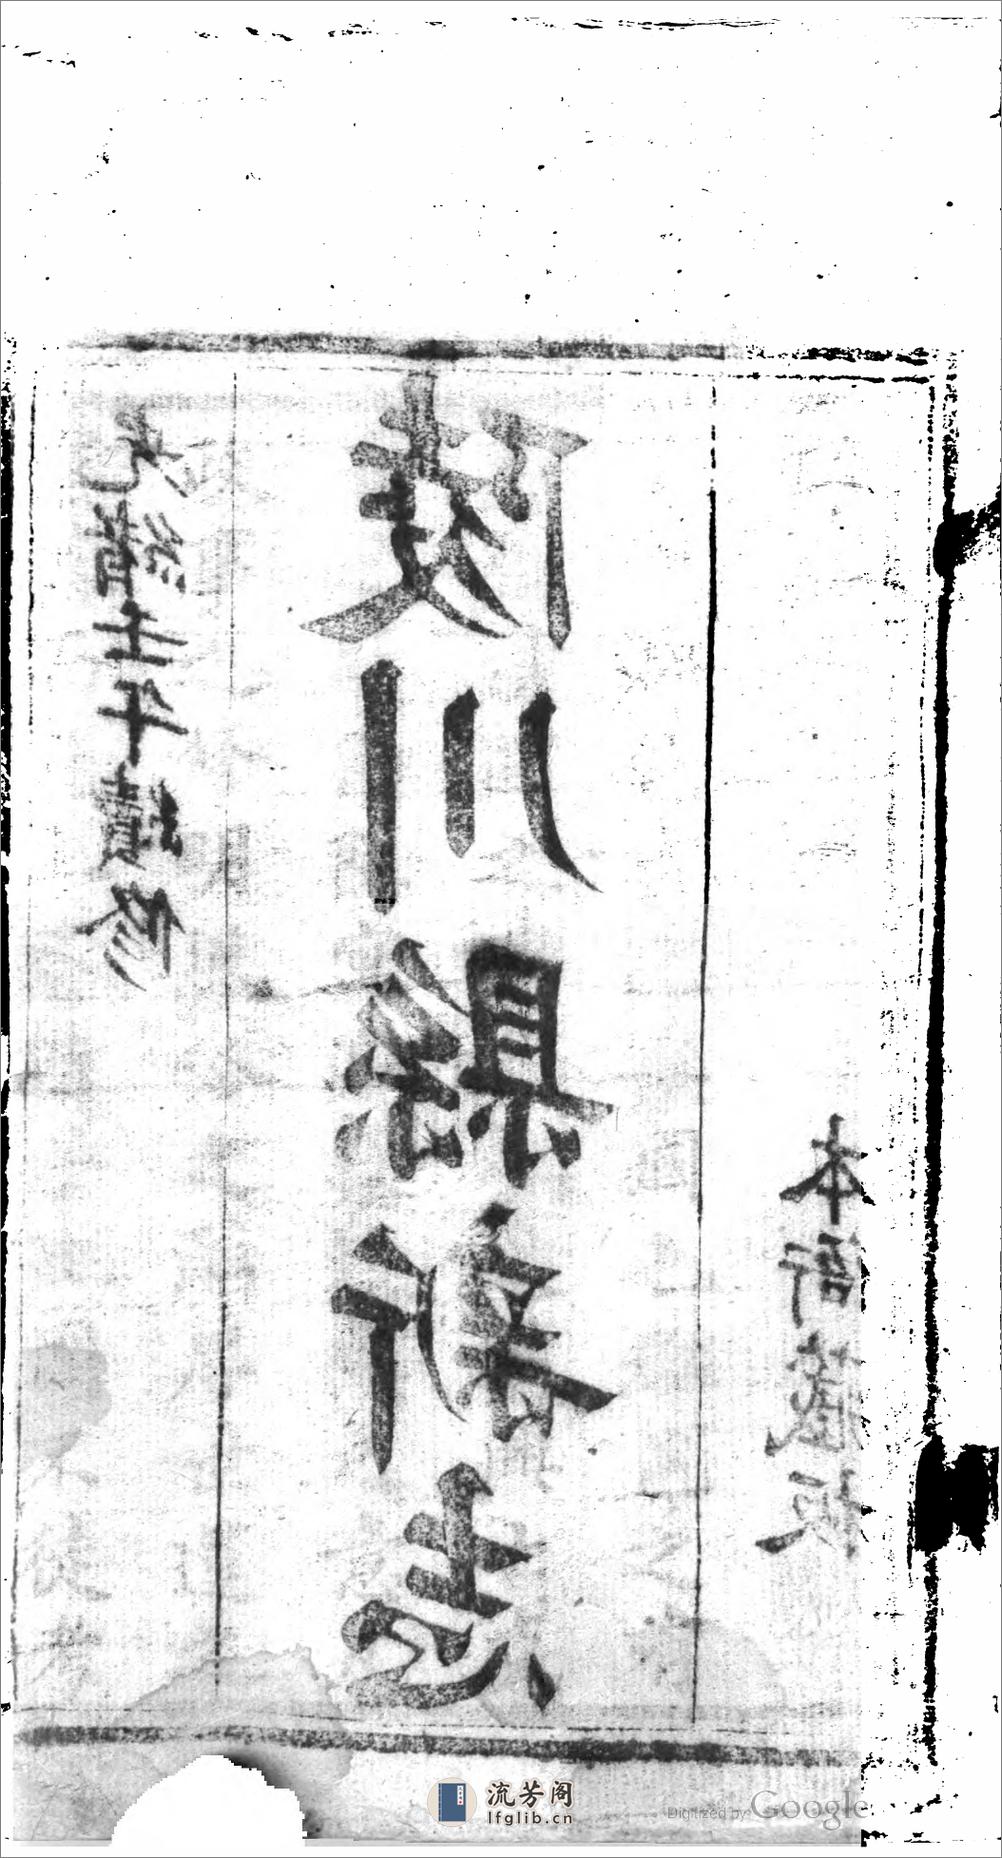 光緒壬午續修
陵川縣新志
本衙藏板
流芳阁
lfglib.cn
Digitized by Google